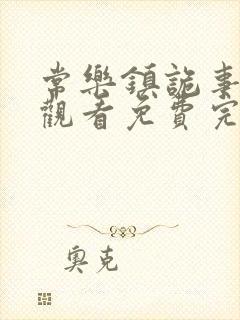 常樂鎮詭事
觀看免費完
奧克